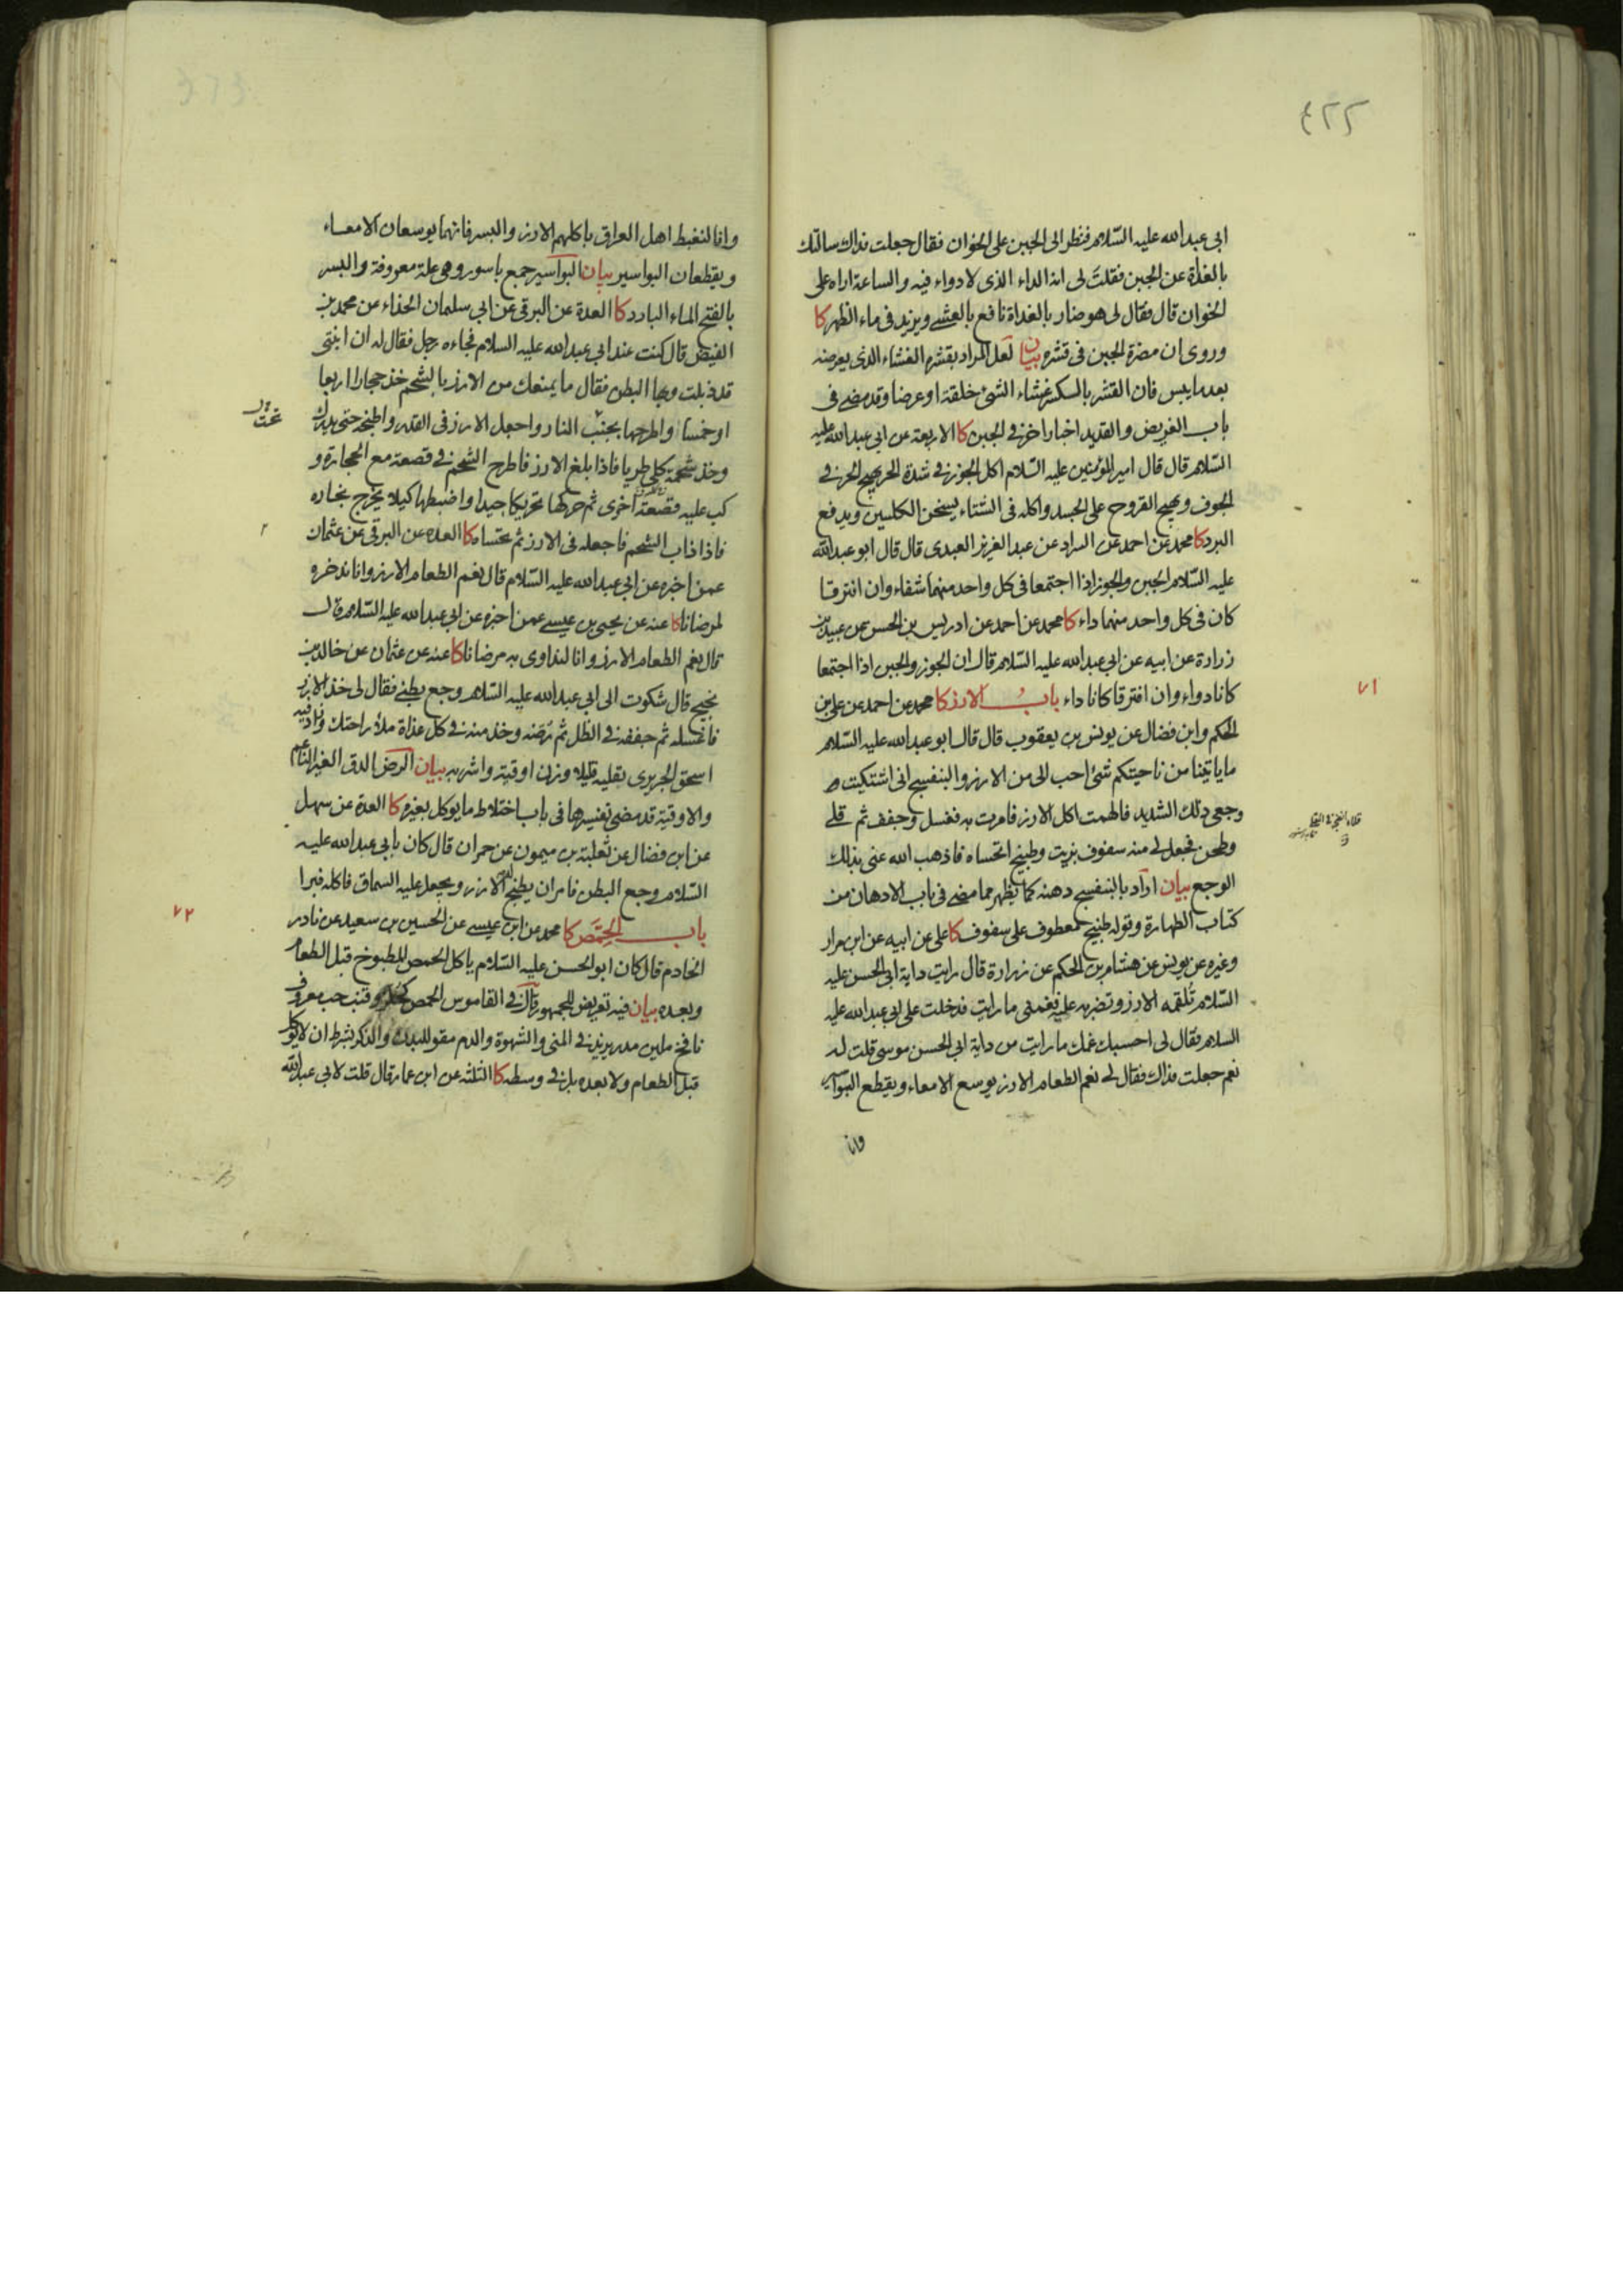 ٤٢٢
ابى عبدالله عليه السّلام فنظر الى الجبن على الخوان فقال جعلت فداك سالتك
بالغداة عن الجبن فقلتَ لى انه الداء الذى لا دواء فيه والساعة اراه على
الخوان قال فقال لى هو ضار بالغداة نافع بالعشى ويزيد فى ماء الظهر كا
وروى ان مضرة الجبن فى قشره بيان لعل المراد بقشره الغشاء الذى يعرضه
بعد ما يبس فان القشر بالكسر غشاء الشئ خلقة او عرضا وقد مضى فى
باب الغريض والقديد اخبار اخر فى الجبن كا الاربعة عن ابى عبدالله عليه
السّلام قال قال امير المؤمنين عليه السّلام اكل الجوز فى شدة الحر يهيج الحر فى
الجوف ويهيج القروح على الجسد واكله فى الشتاء يسخن الكلسين ويدفع
البرد كا محمد عن احمد عن السراد عن عبد العزيز العبدى قال قال ابو عبدالله
عليه السّلام الجبن والجوز اذا اجتمعا فى كل واحد منهما شفاء وان افترقا
كان فى كل واحد منهما داء كا محمد عن احمد عن ادريس بن الحسن عن عبيد بن
زرارة عن ابيه عن ابى عبدالله عليه السّلام قال ان الجوز والجبن اذا اجتمعا
كانا دواء وان افترقا كانا داء باب الارز كا محمد عن احمد عن على بن
٧١
الحكم وابن فضال عن يونس بن يعقوب قال قال ابو عبدالله عليه السّلام
ما ياتينا من ناحيتكم شئ احب الى من الارز والبنفسج انى اشتكيت
وجعى ذلك الشديد فالهمت اكل الارز فامرت به فغسل وجفف ثم قلى
وطحن فجعل لى منه سفوف بزيت وطبيخ اتحساه فاذهب الله عنى بذلك
الوجع بيان اراد بالبنفسج دهنه كما يظهر مما مضى فى باب الادهان من
كتاب الطهارة وقوله طبيخ معطوف على سفوف كا على عن ابيه عن ابن مرار
وغيره عن يونس عن هشام بن الحكم عن زرارة قال رايت داية ابى الحسن عليه
السّلام تُلقمه الارز وتضربه عليه فغمنى ما رايت فدخلت على ابى عبدالله عليه
السلام فقال لى احسبك غمك ما رايت من داية ابى الحسن موسى قلت له
نعم جعلت فداك فقال لى نعم الطعام الارز يوسع الامعاء ويقطع البواسير
وانا
وانا لنغبط اهل العراق باكلهم الارز والبسر فانهما يوسعان الامعاء
ويقطعان البواسير بيان البواسير جمع باسور وهى علة معروفة والبسر
بالفتح الماء البارد كا العدة عن البرقى عن ابى سلمان الحذاء عن محمد بن
الفيض قال كنت عند ابى عبدالله عليه السلام فجاءه رجل فقال له ان ابنتى
قد ذبلت وبها البطن فقال ما يمنعك من الارز بالشحم خذ حجارا اربعا
او خمسا واطرحها بجنب النار واجعل الارز فى القدر واطبخه حتى يدرك
وخذ شحمة كلى طريا فاذا بلغ الارز فاطرح الشحم فى قصعة مع الحجارة و
كب عليه قصعة اخرى ثم حركها تحريكا جيدا واضبطها كيلا يخرج بخاره
فاذا ذاب الشحم فاجعله فى الارز ثم تحتساه كا العدة عن البرقى عن عثمان
عمن اخبره عن ابى عبدالله عليه السّلام قال نعم الطعام الارز وانا ندخره
لمرضانا كا عنه عن يحيى بن عيسى عمن اخبره عن ابى عبدالله عليه السّلام قال
قال نعم الطعام الارز وانا لنداوى به مرضانا كا عنه عن عثمان عن خالد بن
نجيح قال شكوت الى ابى عبدالله عليه السّلام وجع بطنى فقال لى خذ الارز
فاغسله ثم جففه فى الظل ثم رُضّه وخذ منه فى كل غداة ملأ راحتك وزاد فيه
اسحق الجريرى تقليه قليلا وزن اوقية واشربه بيان الرض الدق الغير الناعم
والاوقية قد مضى تفسيرها فى باب اختلاط ما يوكل بغيره كا العدة عن سهل
عن ابن فضال عن ثعلبة بن ميمون عن حمران قال كان بابى عبدالله عليه
السّلام وجع البطن فامر ان يطبخ له الارز ويجعل عليه السماق فاكله فبرا
باب الحِمَّص كا محمد عن ابن عيسى عن الحسين بن سعيد عن نادر
٧٢
الخادم قال كان ابو الحسن عليه السّلام ياكل الحمص المطبوخ قبل الطعام
وبعده بيان فيه تعريض للجمهور قال فى القاموس الحمص كحلز وقنب حب معروف
نافخ ملين مدر يزيد فى المنى والشهوة والدم مقو للبدن والذكر بشرط ان لا يوكل
قبل الطعام ولا بعده بل فى وسطه كا الثلثة عن ابن عمار قال قلت لابى عبدالله